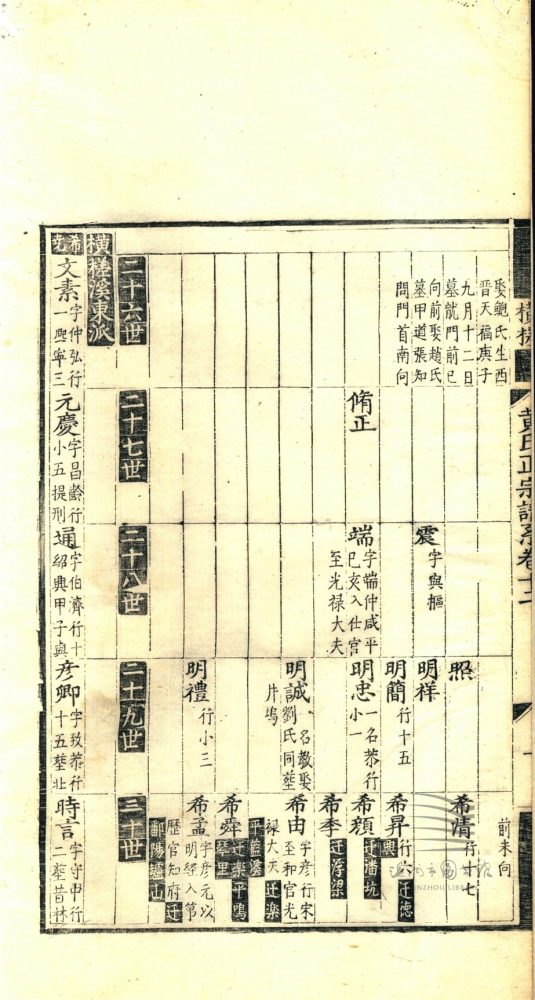 橫槎
黃氏正宗譜系卷十二
娶鮑氏生西
晉天福庚子
九月十二日
墓龍門前巳
向前娶趙氏
墓甲道張知
問門首南向
脩正
震
字與樞
端
字端仲咸平
己亥入仕官
至光祿大夫
照
明祥
明簡
行十五
明忠
一名恭行
小一
明誠
一名教娶
劉氏同塟
片塢
明禮
行小三
前未向
希清
行十七
希昇
行六遷德
興
希顏
迁潘坑
希李
迁浮梁
希由
字彥行宋
至和官光
祿大夫迁樂
平
希舜
迁樂平鳴
琴里
希孟
字彥元以
明經入第
歷官知府迁
鄱陽
山
二十六世
二十七世
二十八世
二十九世
三十世
橫槎溪東派
希堯
文素
字仲弘行
一熙寧三
元慶
字昌齡行
小五提刑
通
字伯濟行十
紹興甲子與
彥卿
字致恭行
十五塟北
時言
字守中行
二塟昔林